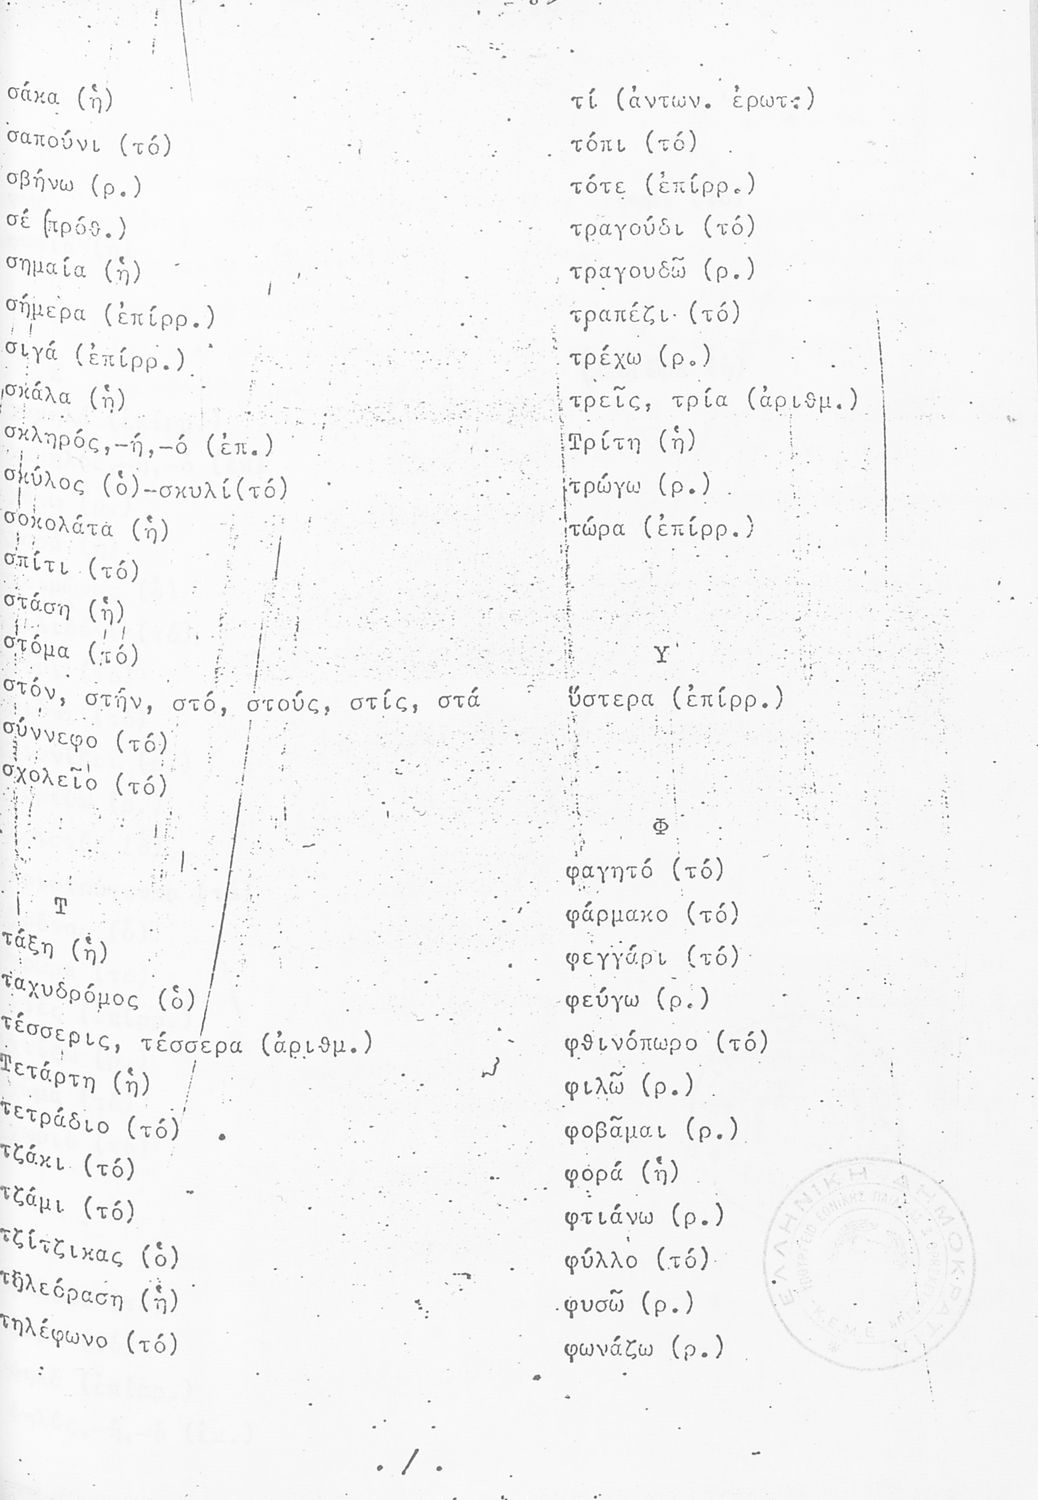 σάκα (ἡ)
σαπούνι (τό)
σβήνω (ρ.)
σέ (πρόθ.)
σημαία (ἡ)
σήμερα (ἐπίρρ.)
σιγά (ἐπίρρ.)
σκάλα (ἡ)
σκληρός,-ή,-ό (ἐπ.)
σκύλος (ὁ)-σκυλί(τό)
σοκολάτα (ἡ)
σπίτι (τό)
στάση (ἡ)
στόμα (τό)
στόν, στήν, στό, στούς, στίς, στά
σύννεφο (τό)
σχολεῖο (τό)
Τ
τάξη (ἡ)
ταχυδρόμος (ὁ)
τέσσερις, τέσσερα (ἀριθμ.)
Τετάρτη (ἡ)
τετράδιο (τό)
τζάκι (τό)
τζάμι (τό)
τζίτζικας (ὁ)
τηλεόραση (ἡ)
τηλέφωνο (τό)
τί (ἀντων. ἐρωτ.)
τόπι (τό)
τότε (ἐπίρρ.)
τραγούδι (τό)
τραγουδῶ (ρ.)
τραπέζι (τό)
τρέχω (ρ.)
τρεῖς, τρία (ἀριθμ.)
Τρίτη (ἡ)
τρώγω (ρ.)
τώρα (ἐπίρρ.)
Υ
ὕστερα (ἐπίρρ.)
Φ
φαγητό (τό)
φάρμακο (τό)
φεγγάρι (τό)
φεύγω (ρ.)
φθινόπωρο (τό)
φιλῶ (ρ.)
φοβᾶμαι (ρ.)
φορά (ἡ)
φτιάνω (ρ.)
φύλλο (τό)
φυσῶ (ρ.)
φωνάζω (ρ.)
ΕΛΛΗΝΙΚΗ ΔΗΜΟΚΡΑΤΙΑ
Κ.Ε.Μ.Ε.
./.